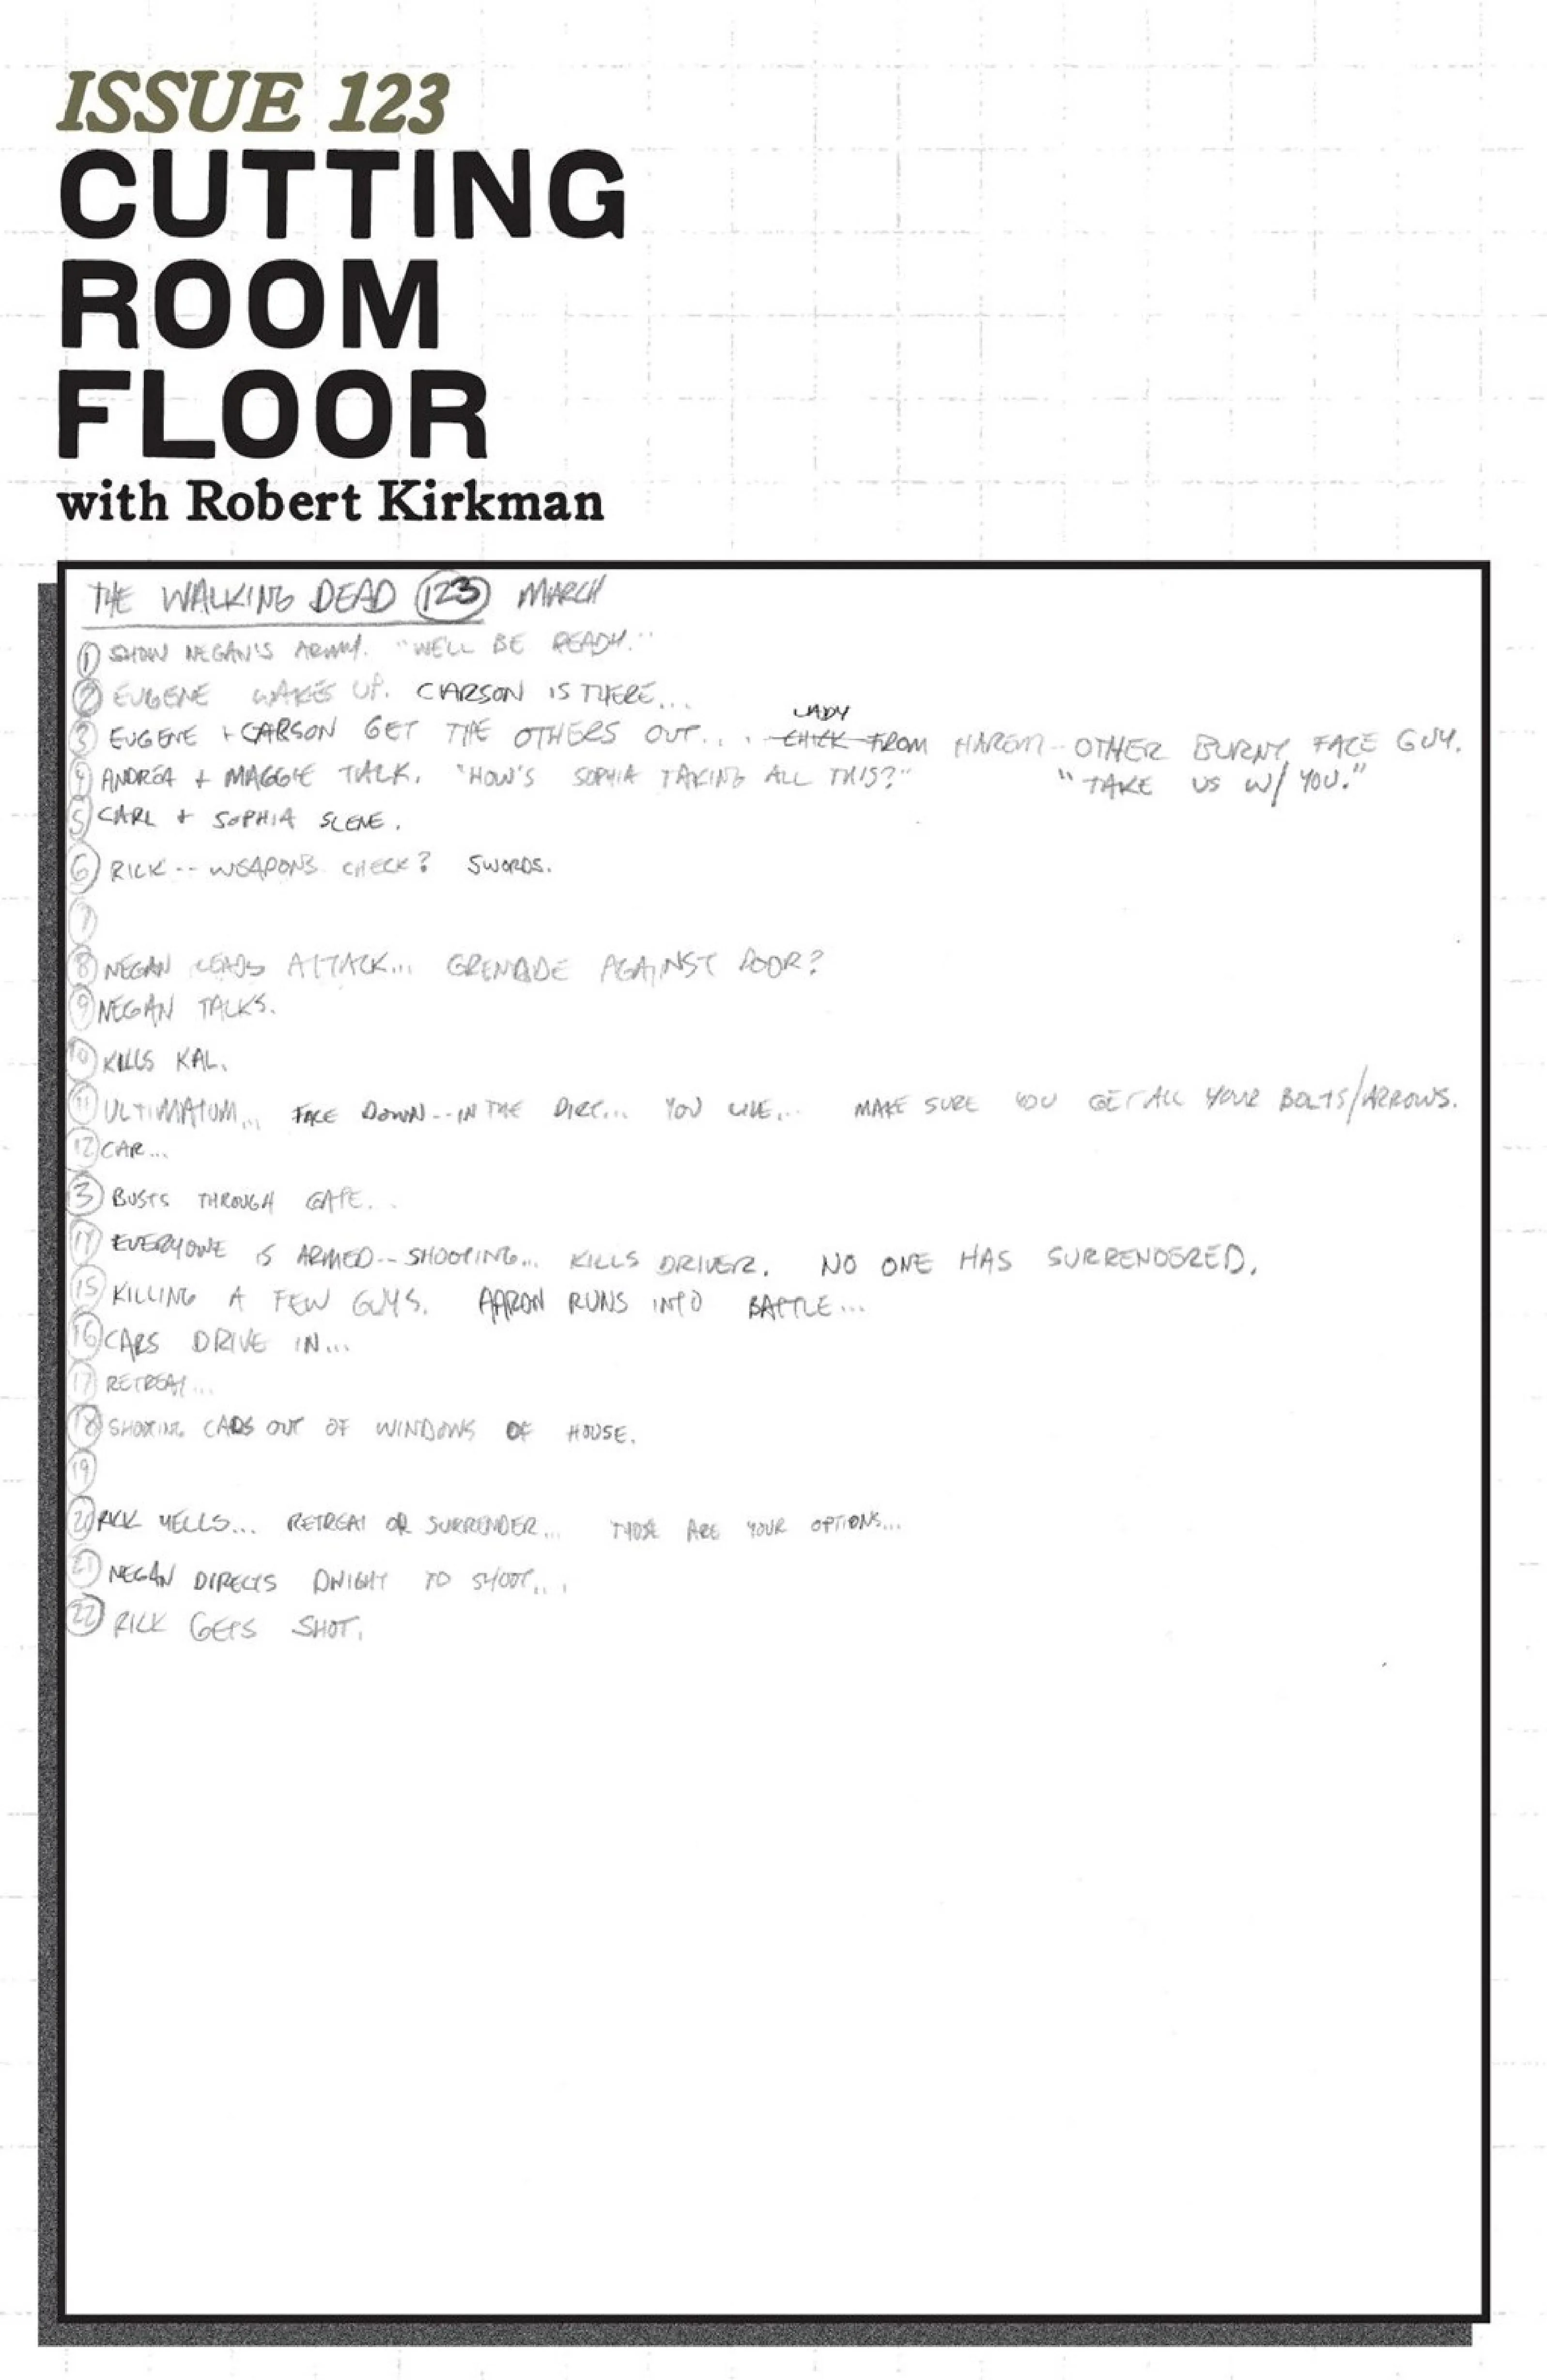 ISSUE 123
CUTTING
ROOM
FLOOR
with Robert Kirkman
THE WALKING DEAD 123 MARCH
1 SHOW NEGAN'S ARMY. "WE'LL BE READY."
2 EUGENE WAKES UP. CARSON IS THERE...
LADY
3 EUGENE + CARSON GET THE OTHERS OUT... CHICK FROM HAREM -- OTHER BURNY FACE GUY.
4 ANDREA + MAGGIE TALK. "HOW'S SOPHIA TAKING ALL THIS?" "TAKE US W/ YOU."
5 CARL + SOPHIA SCENE.
6 RICK -- WEAPONS CHECK? SWORDS.
7
8 NEGAN LEADS ATTACK... GRENADE AGAINST DOOR?
9 NEGAN TALKS.
10 KILLS KAL.
11 ULTIMATUM... FACE DOWN -- IN THE DIRT... YOU LIVE... MAKE SURE YOU GET ALL YOUR BOLTS/ARROWS.
12 CAR...
13 BUSTS THROUGH GATE...
14 EVERYONE IS ARMED -- SHOOTING... KILLS DRIVER. NO ONE HAS SURRENDERED.
15 KILLING A FEW GUYS. AARON RUNS INTO BATTLE...
16 CARS DRIVE IN...
17 RETREAT...
18 SHOOTING CARS OUT OF WINDOWS OF HOUSE.
19
20 RICK YELLS... RETREAT OR SURRENDER... THOSE ARE YOUR OPTIONS...
21 NEGAN DIRECTS DWIGHT TO SHOOT...
22 RICK GETS SHOT.